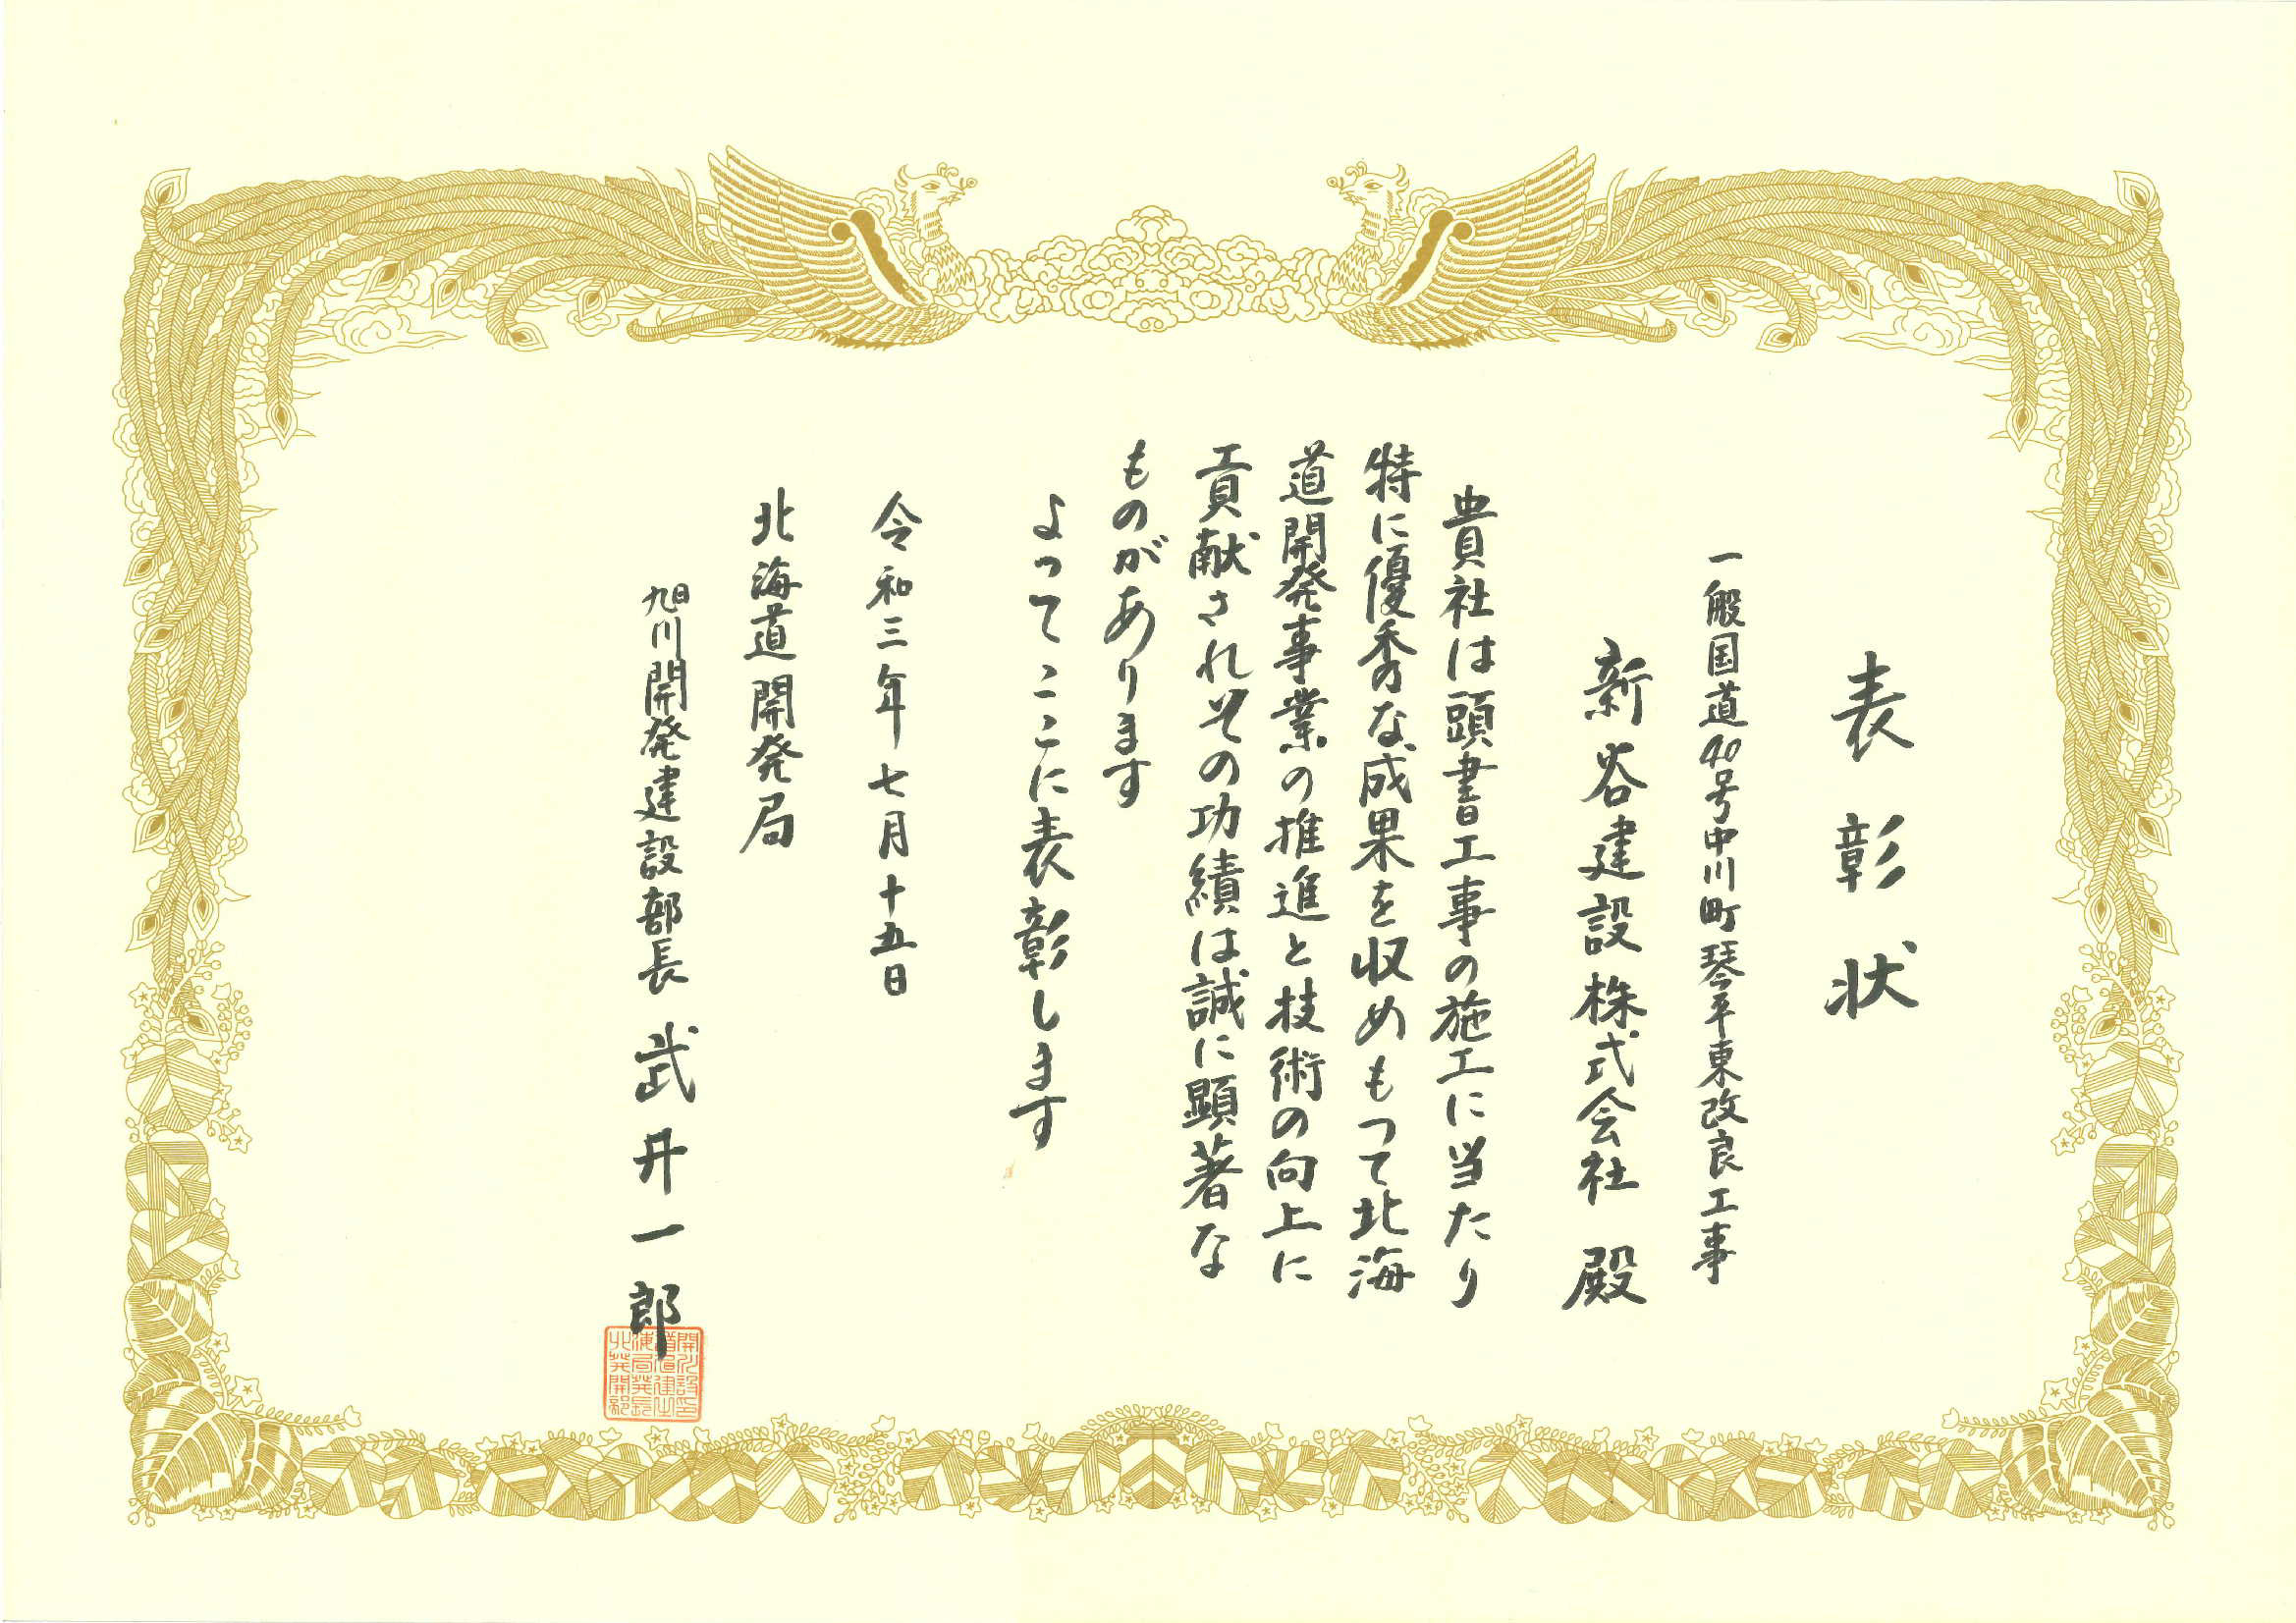 表彰状
一般国道40号中川町琴平東改良工事
新谷建設株式会社 殿
貴社は頭書工事の施工に当たり
特に優秀な成果を収めもって北海
道開発事業の推進と技術の向上に
貢献されその功績は誠に顕著な
ものがあります
よってここに表彰します
令和三年七月十五日
北海道開発局
旭川開発建設部長 武井一郎